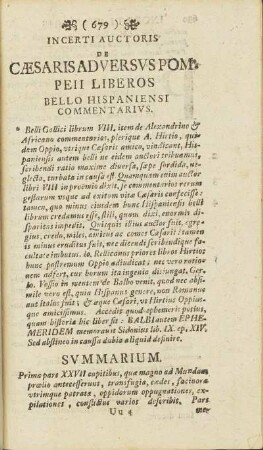 ( 679 )
INCERTI AUCTORIS
DE
CÆSARIS ADVERSVS POM-
PEII LIBEROS
BELLO HISPANIENSI
COMMENTARIVS.
* Belli Gallici librum VIII, item de Alexandrino &
Africano commentarios, plerique A. Hirtio, qui-
dam Oppio, utrique Cæsaris amico, vindicant, His-
paniensis autem belli ne eidem auctori tribuamus,
scribendi ratio maxime diversa, sæpe sordida, ne-
glecta, turbata in causa est. Quamquam enim auctor
libri VIII in proœmio dixit, se commentarios rerum
gestarum usque ad exitum vitæ Cæsaris confecisse:
tamen, quo minus eiusdem hunc Hispaniensis belli
librum credamus esse, stili, quam dixi, enormis di-
sparitas impedit. Quisquis illius auctor fuit, egre-
gius, credo, miles, amicus ac comes Cæsaris: tamen
non omnino eruditus fuit, nec dicendi scribendique fa-
cultate imbutus. Io.
priores libros Hirtio
hunc postremum Oppio adiudicat: nec vero ratio-
nem adfert, cur horum ita ingenio distinguat. Ger.
Io. Vossio in mentem de Balbo venit, quod nec absi-
mile vero est, quia Hispanus genere, non Romanus
aut Italus fuit; & æque Cæsari, ut Hirtius Oppius-
que amicissimus. Accedit quod ephemeris potius,
quam historia hic liber sit: BALBI autem EPHE-
MERIDEM memoravit Sidonius lib. IX. ep. XIV.
Sed abstineo in caussa dubia aliquid definire.
SVMMARIVM.
Prima pars XXVII capitibus, quæ magno ad Mundam
prælio antecesserunt, transfugia, cædes, facinora
utrimque patrata, oppidorum oppugnationes, ex-
pilationes, conflictus varios describit. Pars
Uu 4